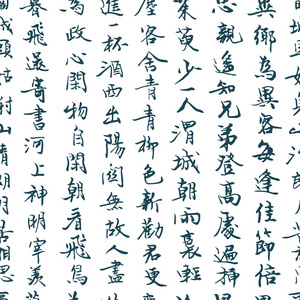 異鄉為異客每逢佳節倍
思親遙知兄弟登高處遍插
茱萸少一人渭城朝雨裛輕
塵客舍青青柳色新勸君更
進一杯酒西出陽関無故人盡
為政心閑物自閑朝看飛鳥
暮飛還寄書河上神明宰羨
城頭姑射山相思